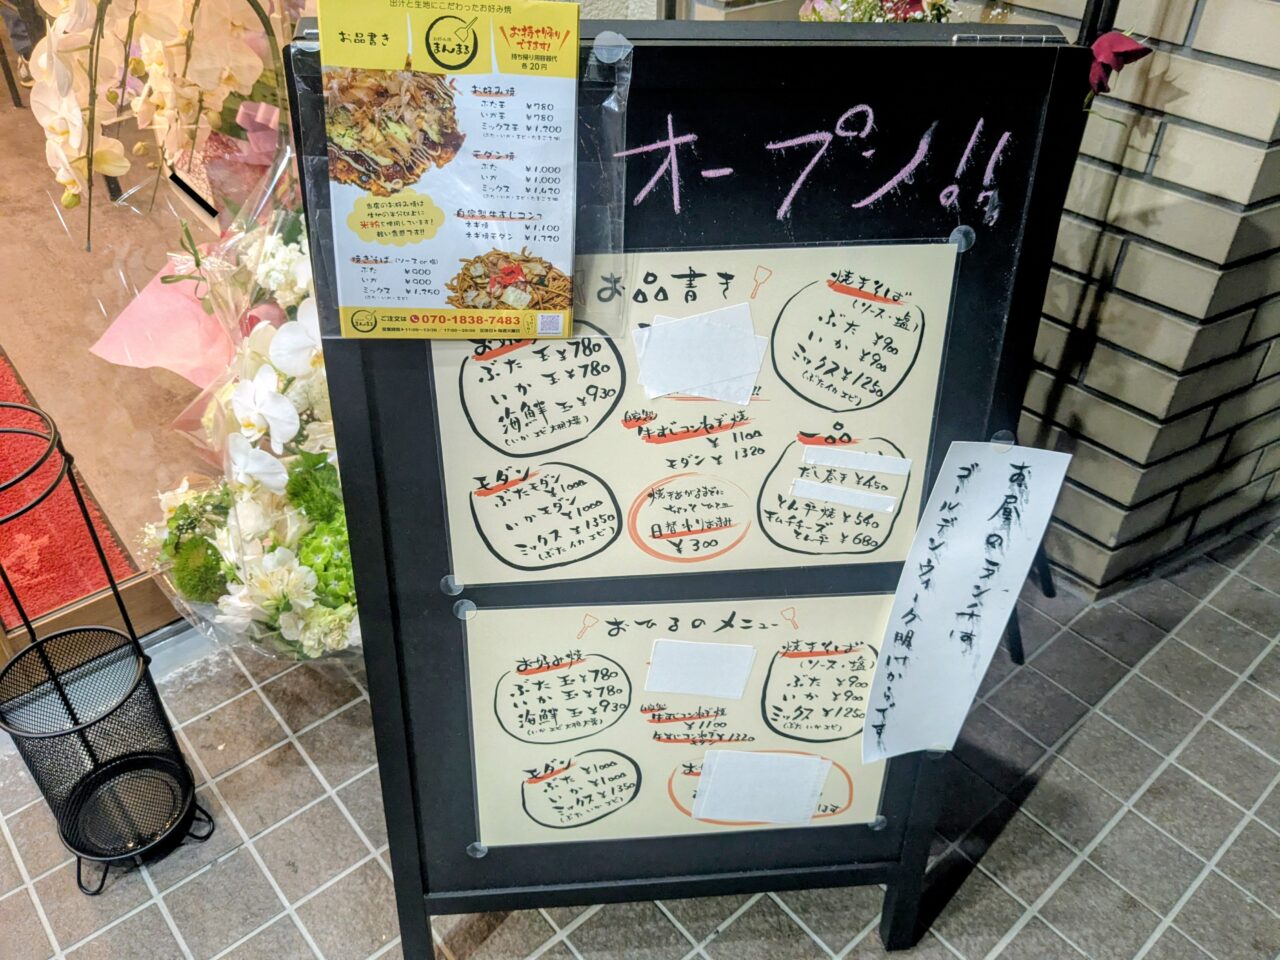 出汁と生地にこだわったお好み焼
お品書き
お好み焼
まんまる
お持ち帰り
できます!
持ち帰り用容器代
各20円
お好み焼
ぶた玉 ¥780
いか玉 ¥780
ミックス玉 ¥1,200
モダン焼
ぶた ¥1,000
いか ¥1,000
ミックス ¥1,420
当店のお好み焼は
生地の半分以上に
米粉を使用しています!
軽い食感です!!
自家製牛すじコンコ
ネギ焼 ¥1,100
ネギ焼モダン ¥1,320
焼きそば (ソースor塩)
ぶた ¥900
いか ¥900
ミックス ¥1,250
(ぶた・いか・エビ)
まんまる
ご注文は 070-1838-7483
オープン!!
お品書き
ぶた玉 ¥780
いか玉 ¥780
海鮮玉 ¥930
(いか エビ 大粒大葉)
モダン
ぶたモダン ¥1000
いかモダン ¥1000
ミックス ¥1350
(ぶた イカ エビ)
自家製
牛すじコンねぎ焼
¥1100
モダン ¥1320
日替わりおつまみ
¥300
焼きそば
(ソース・塩)
ぶた ¥900
いか ¥900
ミックス ¥1250
(ぶたイカ エビ)
一品
だし巻き ¥450
とん平焼 ¥540
キムチチーズ
とん平 ¥680
おひるのメニュー
お好み焼
ぶた玉 ¥780
いか玉 ¥780
海鮮玉 ¥930
(いか エビ 大粒大葉)
モダン
ぶた ¥1000
いか ¥1000
ミックス ¥1350
(ぶた いか エビ)
自家製
牛すじコンねぎ焼
¥1100
牛すじコンねぎ ¥1320
モダン
焼きそば
(ソース・塩)
ぶた ¥900
いか ¥900
ミックス ¥1250
(ぶたイカ エビ)
お昼のランチは
ゴールデンウィーク明けからです